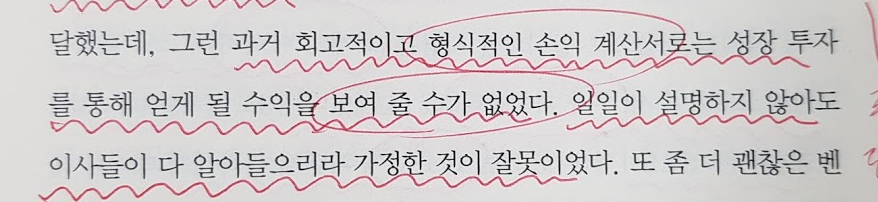 달했는데, 그런 과거 회고적이고 형식적인 손익 계산서로는 성장 투자
를 통해 얻게 될 수익을 보여 줄 수가 없었다. 일일이 설명하지 않아도
이사들이 다 알아들으리라 가정한 것이 잘못이었다. 또 좀 더 괜찮은 벤